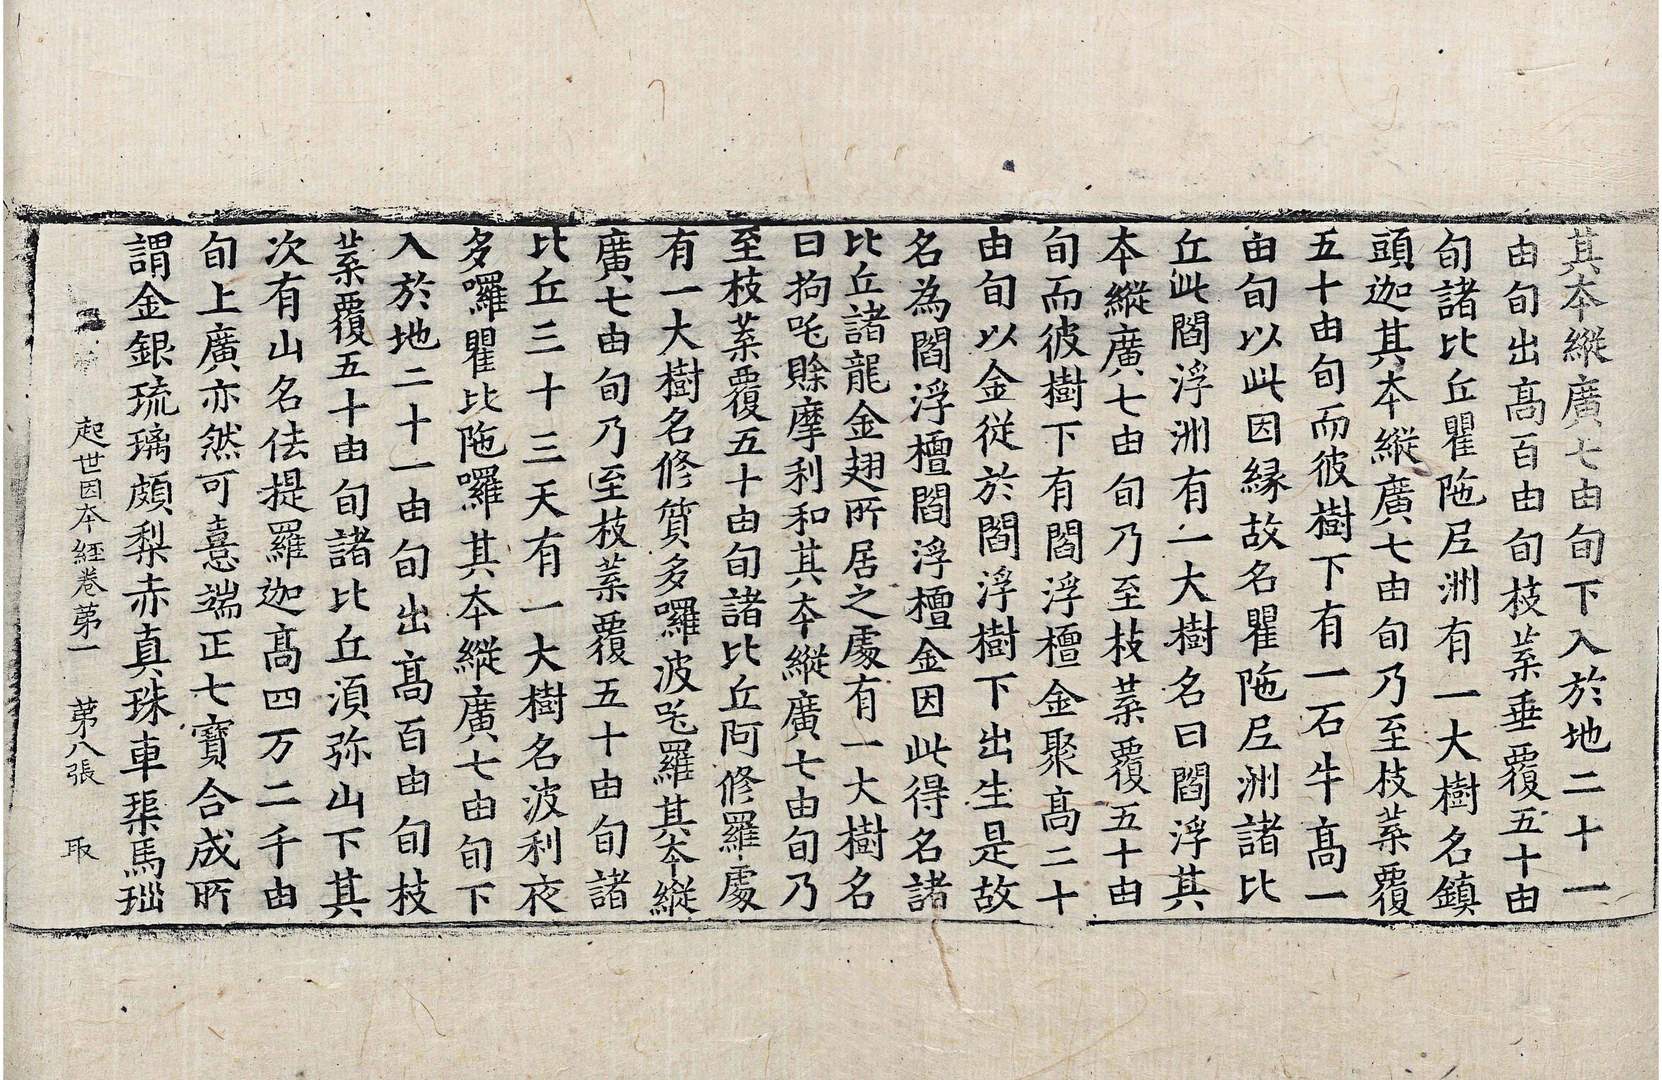 其本縱廣七由旬下入於地二十一
由旬出髙百由旬枝葉垂覆五十由
旬諸比丘瞿陁尼洲有一大樹名鎮
頭迦其本縱廣七由旬乃至枝葉覆
五十由旬而彼樹下有一石牛髙一
由旬以此因縁故名瞿陁尼洲諸比
丘此閻浮洲有一大樹名曰閻浮其
本縱廣七由旬乃至枝葉覆五十由
旬而彼樹下有閻浮檀金聚髙二十
由旬以金從於閻浮樹下出生是故
名為閻浮檀閻浮檀金因此得名諸
比丘諸龍金翅所居之處有一大樹名
曰拘吒賒摩利和其本縱廣七由旬乃
至枝葉覆五十由旬諸比丘阿修羅處
有一大樹名修質多囉波吒羅其本縱
廣七由旬乃至枝葉覆五十由旬諸
比丘三十三天有一大樹名波利夜
多囉瞿比陁囉其本縱廣七由旬下
入於地二十一由旬出髙百由旬枝
葉覆五十由旬諸比丘湏弥山下其
次有山名佉提羅迦髙四万二千由
旬上廣亦然可憙端正七寶合成所
謂金銀琉璃頗梨赤真珠車𤦲馬瑙
起世因本經卷苐一 苐八張 取